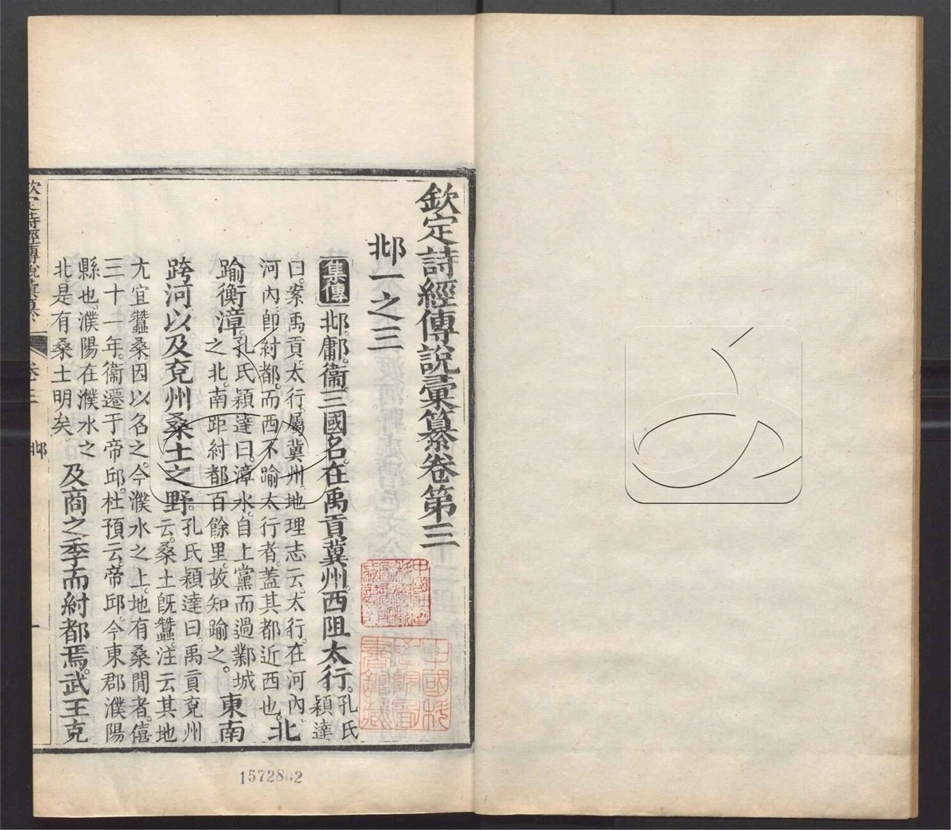 欽定詩經傳說彙纂卷第三
邶一之三
集傳邶鄘衞三國名在禹貢冀州西阻太行孔氏穎達
曰案禹貢太行屬冀州地理志云太行在河內
河內卽紂都而西不踰太行者蓋其都近西也北
踰衡漳孔氏穎達曰漳水自上黨而過鄴城
之北南距紂都百餘里故知踰之東南
跨河以及兗州桑土之野孔氏穎達曰禹貢兗州
云桑土旣蠶注云其地
尢宜蠶桑因以名之今濮水之上地有桑閒者僖
三十一年衞遷于帝邱杜預云帝邱今東郡濮陽
縣也濮陽在濮水之
北是有桑土明矣及商之季而紂都焉武王克
欽定詩經傳說彙纂
卷三
邶
一